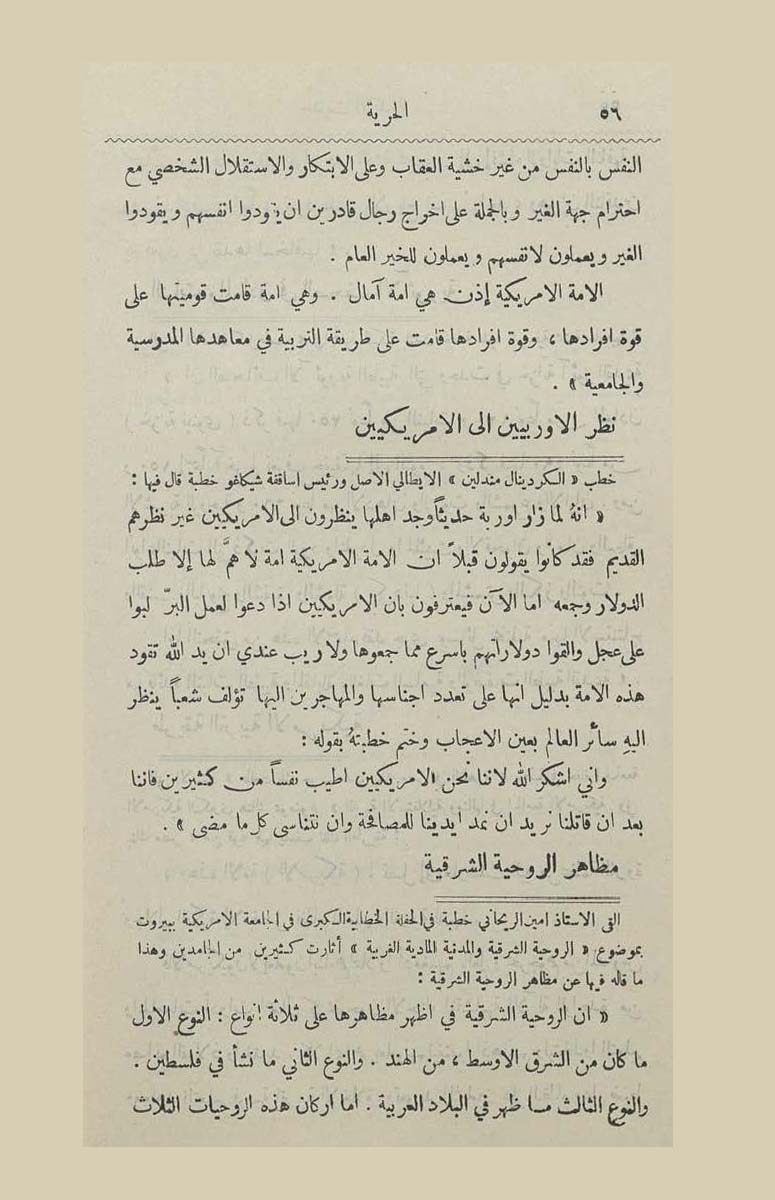 ٥٦ الحرية
النفس بالنفس من غير خشية العقاب وعلى الابتكار والاستقلال الشخصي مع
احترام جهة الغير وبالجملة على اخراج رجال قادرين ان يقودوا انفسهم ويقودوا
الغير ويعملون لانفسهم ويعملون للخير العام .
الامة الامريكية إذن هي امة آمال . وهي امة قامت قوميتها على
قوة افرادها ، وقوة افرادها قامت على طريقة التربية في معاهدها المدرسية
والجامعية » .
نظر الاوربيين الى الامريكيين
خطب « الكردينال مندلين » الايطالي الاصل ورئيس اساقفة شيكاغو خطبة قال فيها :
« انهُ لما زار اوربة حديثاً وجد اهلها ينظرون الى الامريكيين غير نظرهم
القديم فقد كانوا يقولون قبلاً ان الامة الامريكية امة لا همَّ لها إلا طلب
الدولار وجمعه اما الآن فيعترفون بان الامريكيين اذا دعوا لعمل البرّ لبوا
على عجل والقوا دولاراتهم باسرع مما جمعوها ولا ريب عندي ان يد الله تقود
هذه الامة بدليل انها على تعدد اجناسها والمهاجرين اليها تؤلف شعباً ينظر
اليهِ سائر العالم بعين الاعجاب وختم خطبتهُ بقوله :
واني اشكر الله لاننا نحن الامريكيين اطيب نفساً من كثيرين فاننا
بعد ان قاتلنا نريد ان نمد ايدينا للمصافحة وان نتناسى كل ما مضى » .
مظاهر الروحية الشرقية
القى الاستاذ امين الريحاني خطبة في الحفلة الخطابية الكبرى في الجامعة الامريكية ببيروت
بموضوع « الروحية الشرقية والمدنية المادية الغربية » أثارت كثيرين من الجامدين وهذا
ما قاله فيها عن مظاهر الروحية الشرقية :
« ان الروحية الشرقية في اظهر مظاهرها على ثلاثة انواع : النوع الاول
ما كان من الشرق الاوسط ، من الهند . والنوع الثاني ما نشأ في فلسطين .
والنوع الثالث ما ظهر في البلاد العربية . اما اركان هذه الروحيات الثلاث